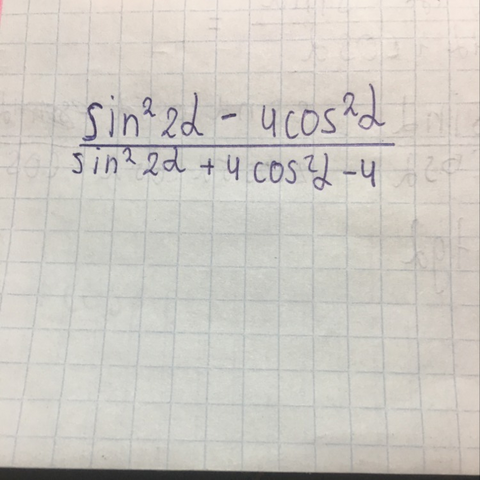 sin² 2α - 4cos²α
sin² 2α + 4cos²α - 4